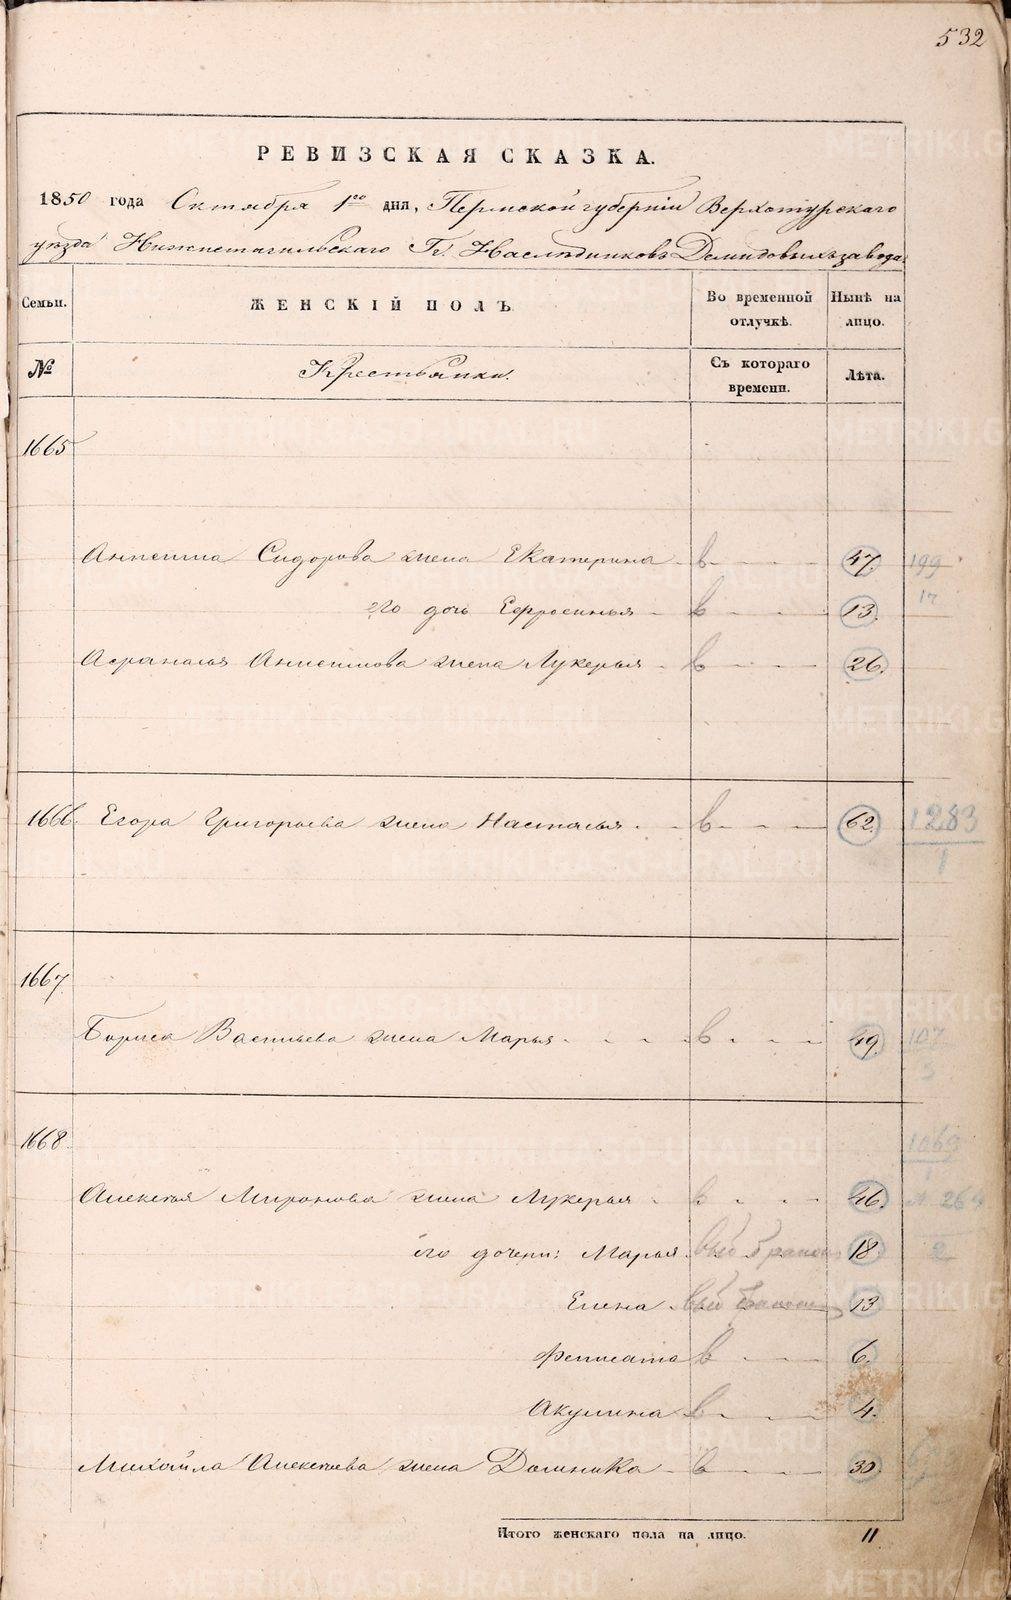 532
РЕВИЗСКАЯ СКАЗКА.
1850 года Октября 1го дня, Пермской губерніи Верхотурскаго
уѣзда Нижнетагильскаго Гг. Наслѣдниковъ Демидовыхъ завода.
Семьи. ЖЕНСКІЙ ПОЛЪ. Во временной отлучкѣ. Нынѣ на лицо.
№ Крестьянки. Съ котораго времени. Лѣта.
1665
Анисима Сидорова жена Екатерина в 47. 199
его дочь Ефросинья в 13. 17
Афанасья Анисимова жена Лукерья в 26.
1666. Егора Григорьева жена Настасья в 62. 1283
1
1667.
Бориса Васильева жена Марья в 49. 107
5
1668. 1069
1
Алексѣя Миронова жена Лукерья в 46. 264
его дочери: Марья 18. 2
Елена 13
Феписата в 6.
Акулина в 4.
Михайла Алексѣева жена Домника в 30.
Итого женскаго пола на лицо. 11
METRIKI.GASO-URAL.RU